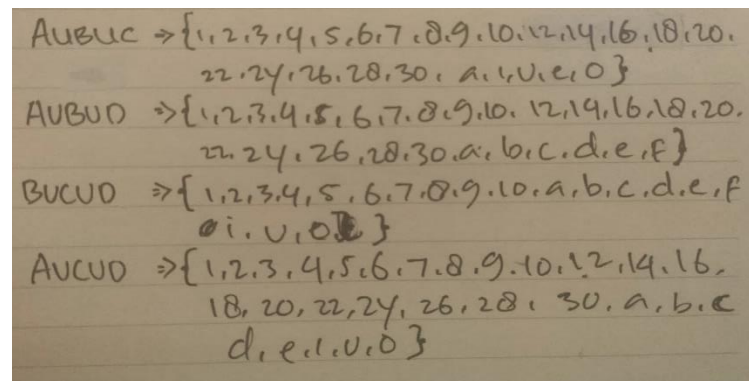 AUBUC ⇒ {1,2,3,4,5,6,7,8,9,10,12,14,16,18,20,
22,24,26,28,30, a,i,u,e,o}
AUBUD ⇒ {1,2,3,4,5,6,7,8,9,10, 12,14,16,18,20,
22,24,26,28,30,a,b,c,d,e,f}
BUCUD ⇒ {1,2,3,4,5,6,7,8,9,10,a,b,c,d,e,f
i,u,o}
AUCUD ⇒ {1,2,3,4,5,6,7,8,9,10,12,14,16,
18,20,22,24,26,28, 30,a,b,c
d,e,i,u,o}